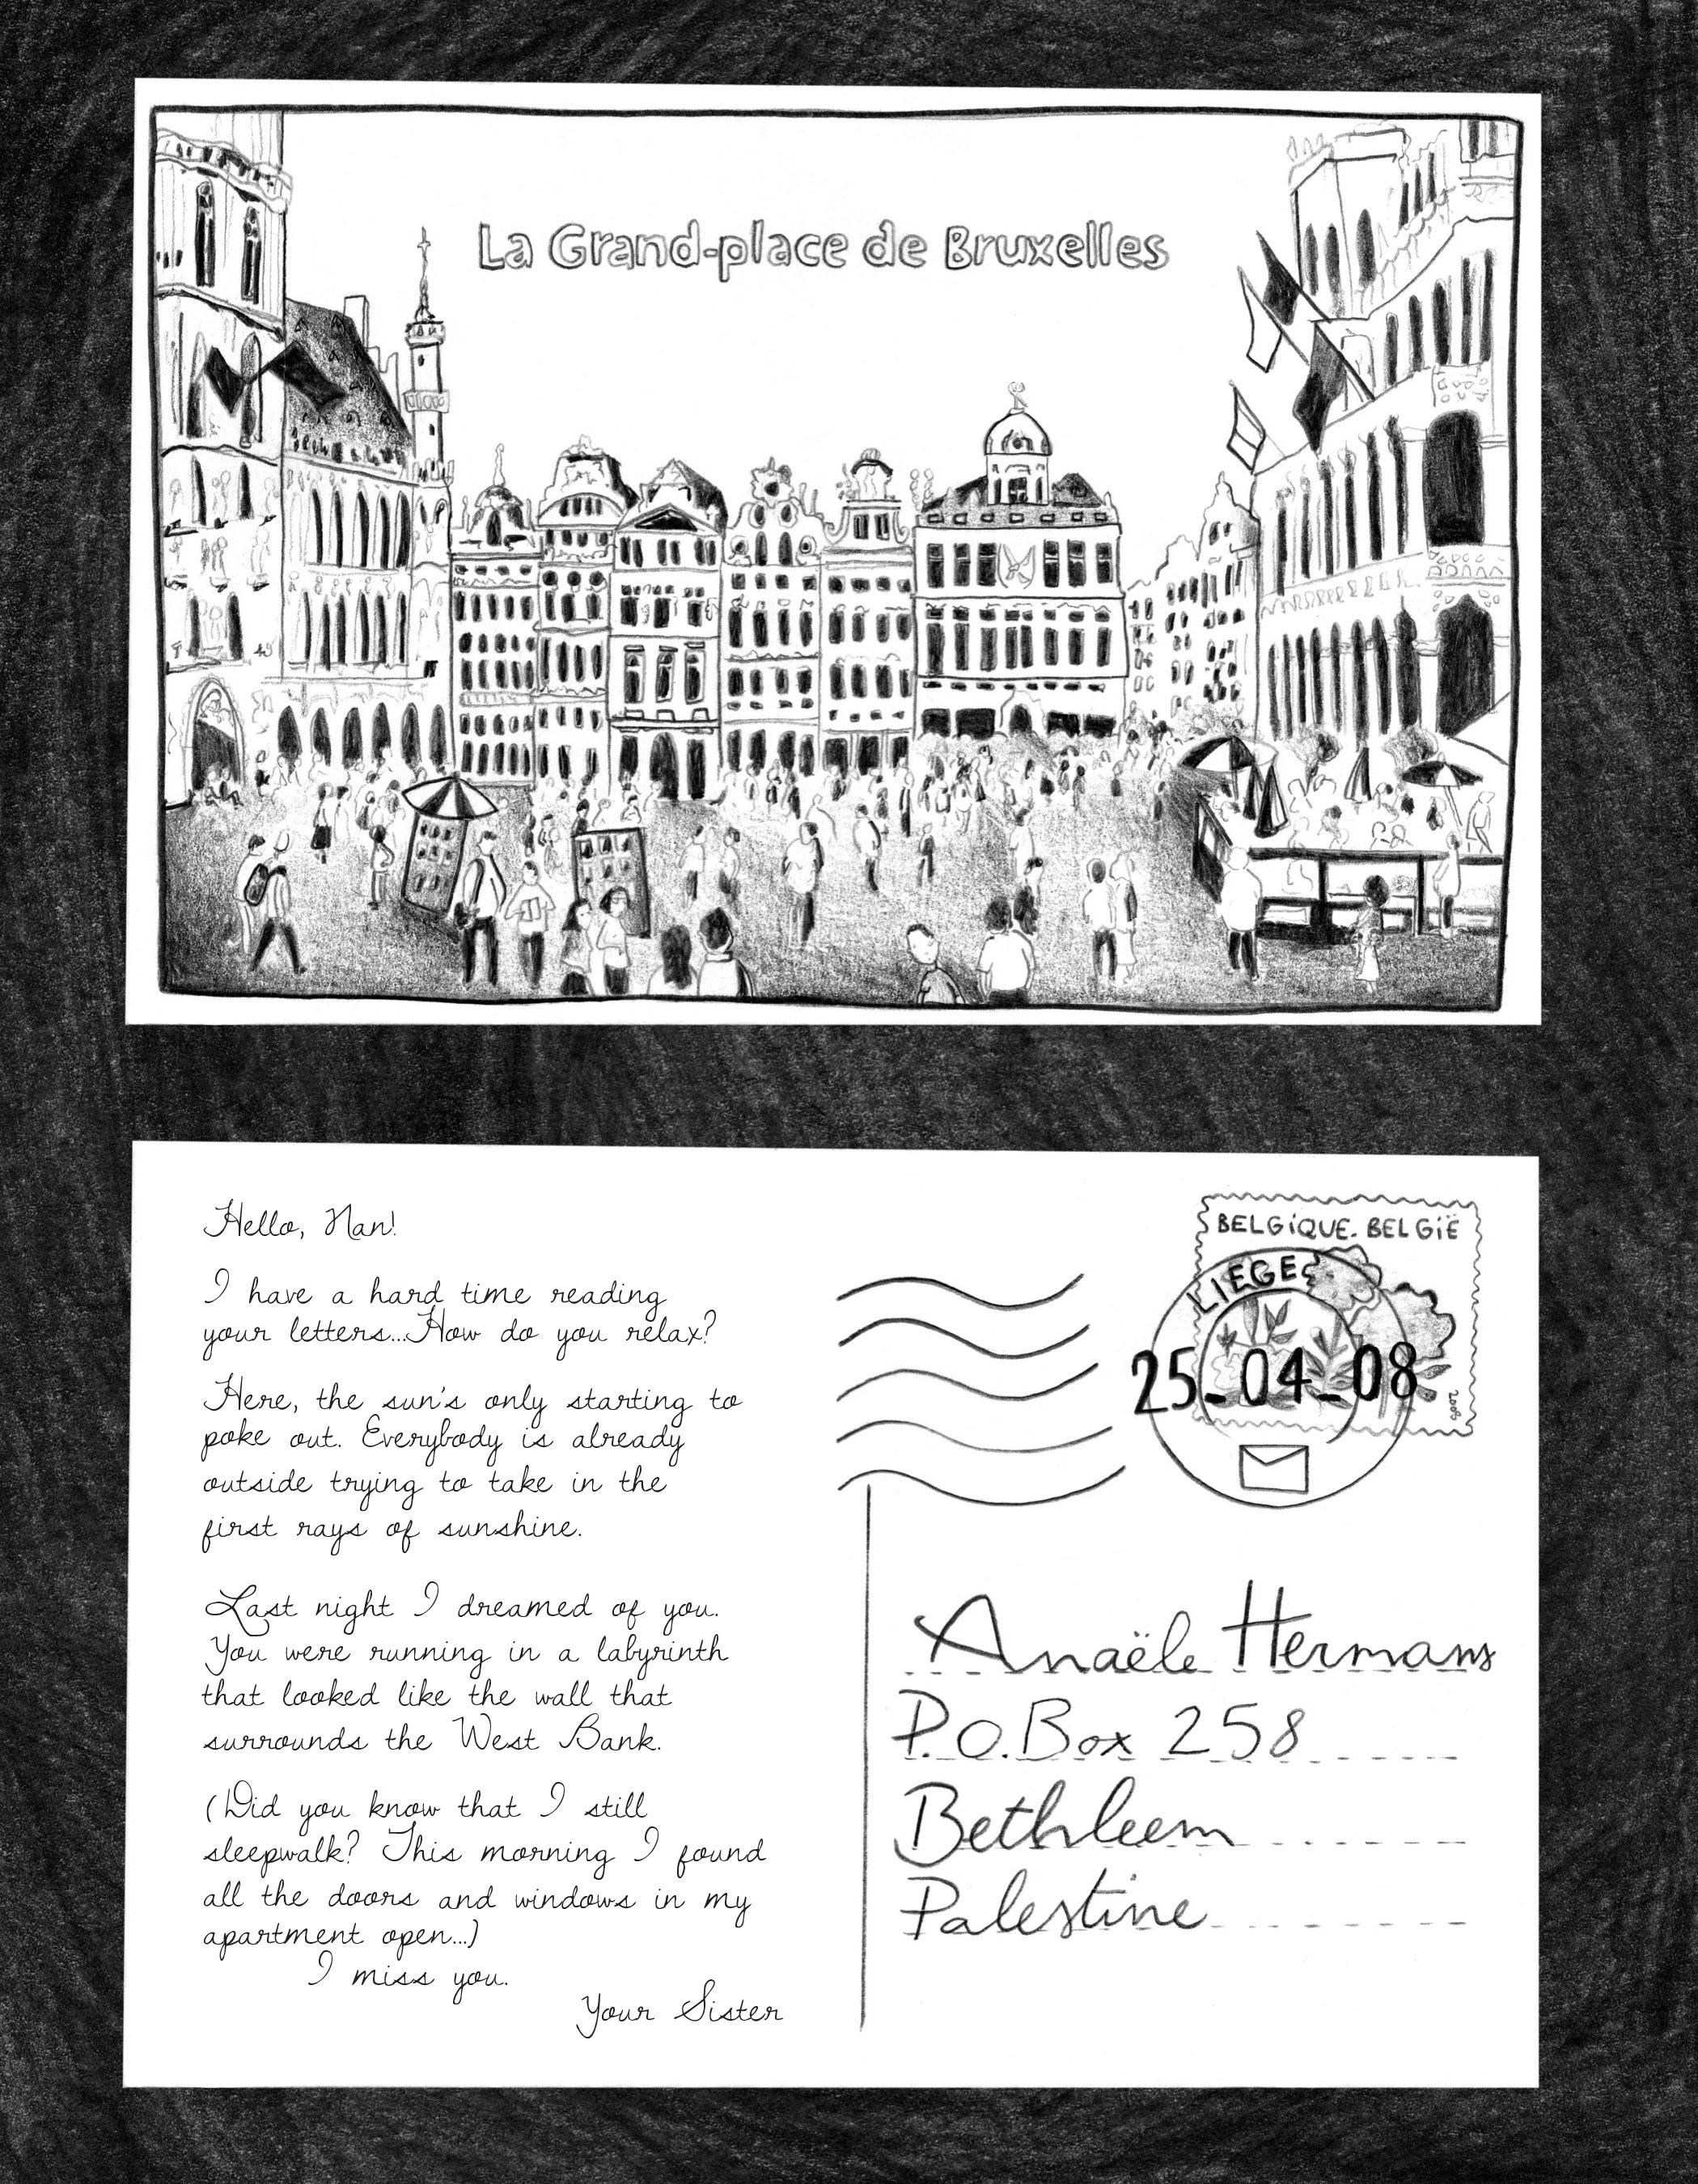 La Grand-place de Bruxelles
Hello, Nan!
I have a hard time reading
your letters...How do you relax?
Here, the sun's only starting to
poke out. Everybody is already
outside trying to take in the
first rays of sunshine.
Last night I dreamed of you.
You were running in a labyrinth
that looked like the wall that
surrounds the West Bank.
(Did you know that I still
sleepwalk? This morning I found
all the doors and windows in my
apartment open...)
I miss you.
Your Sister
BELGiQUE. BELGiË
LIEGE
25_04_08
2008
Anaële Hermans
P.O. Box 258
Bethleem
Palestine